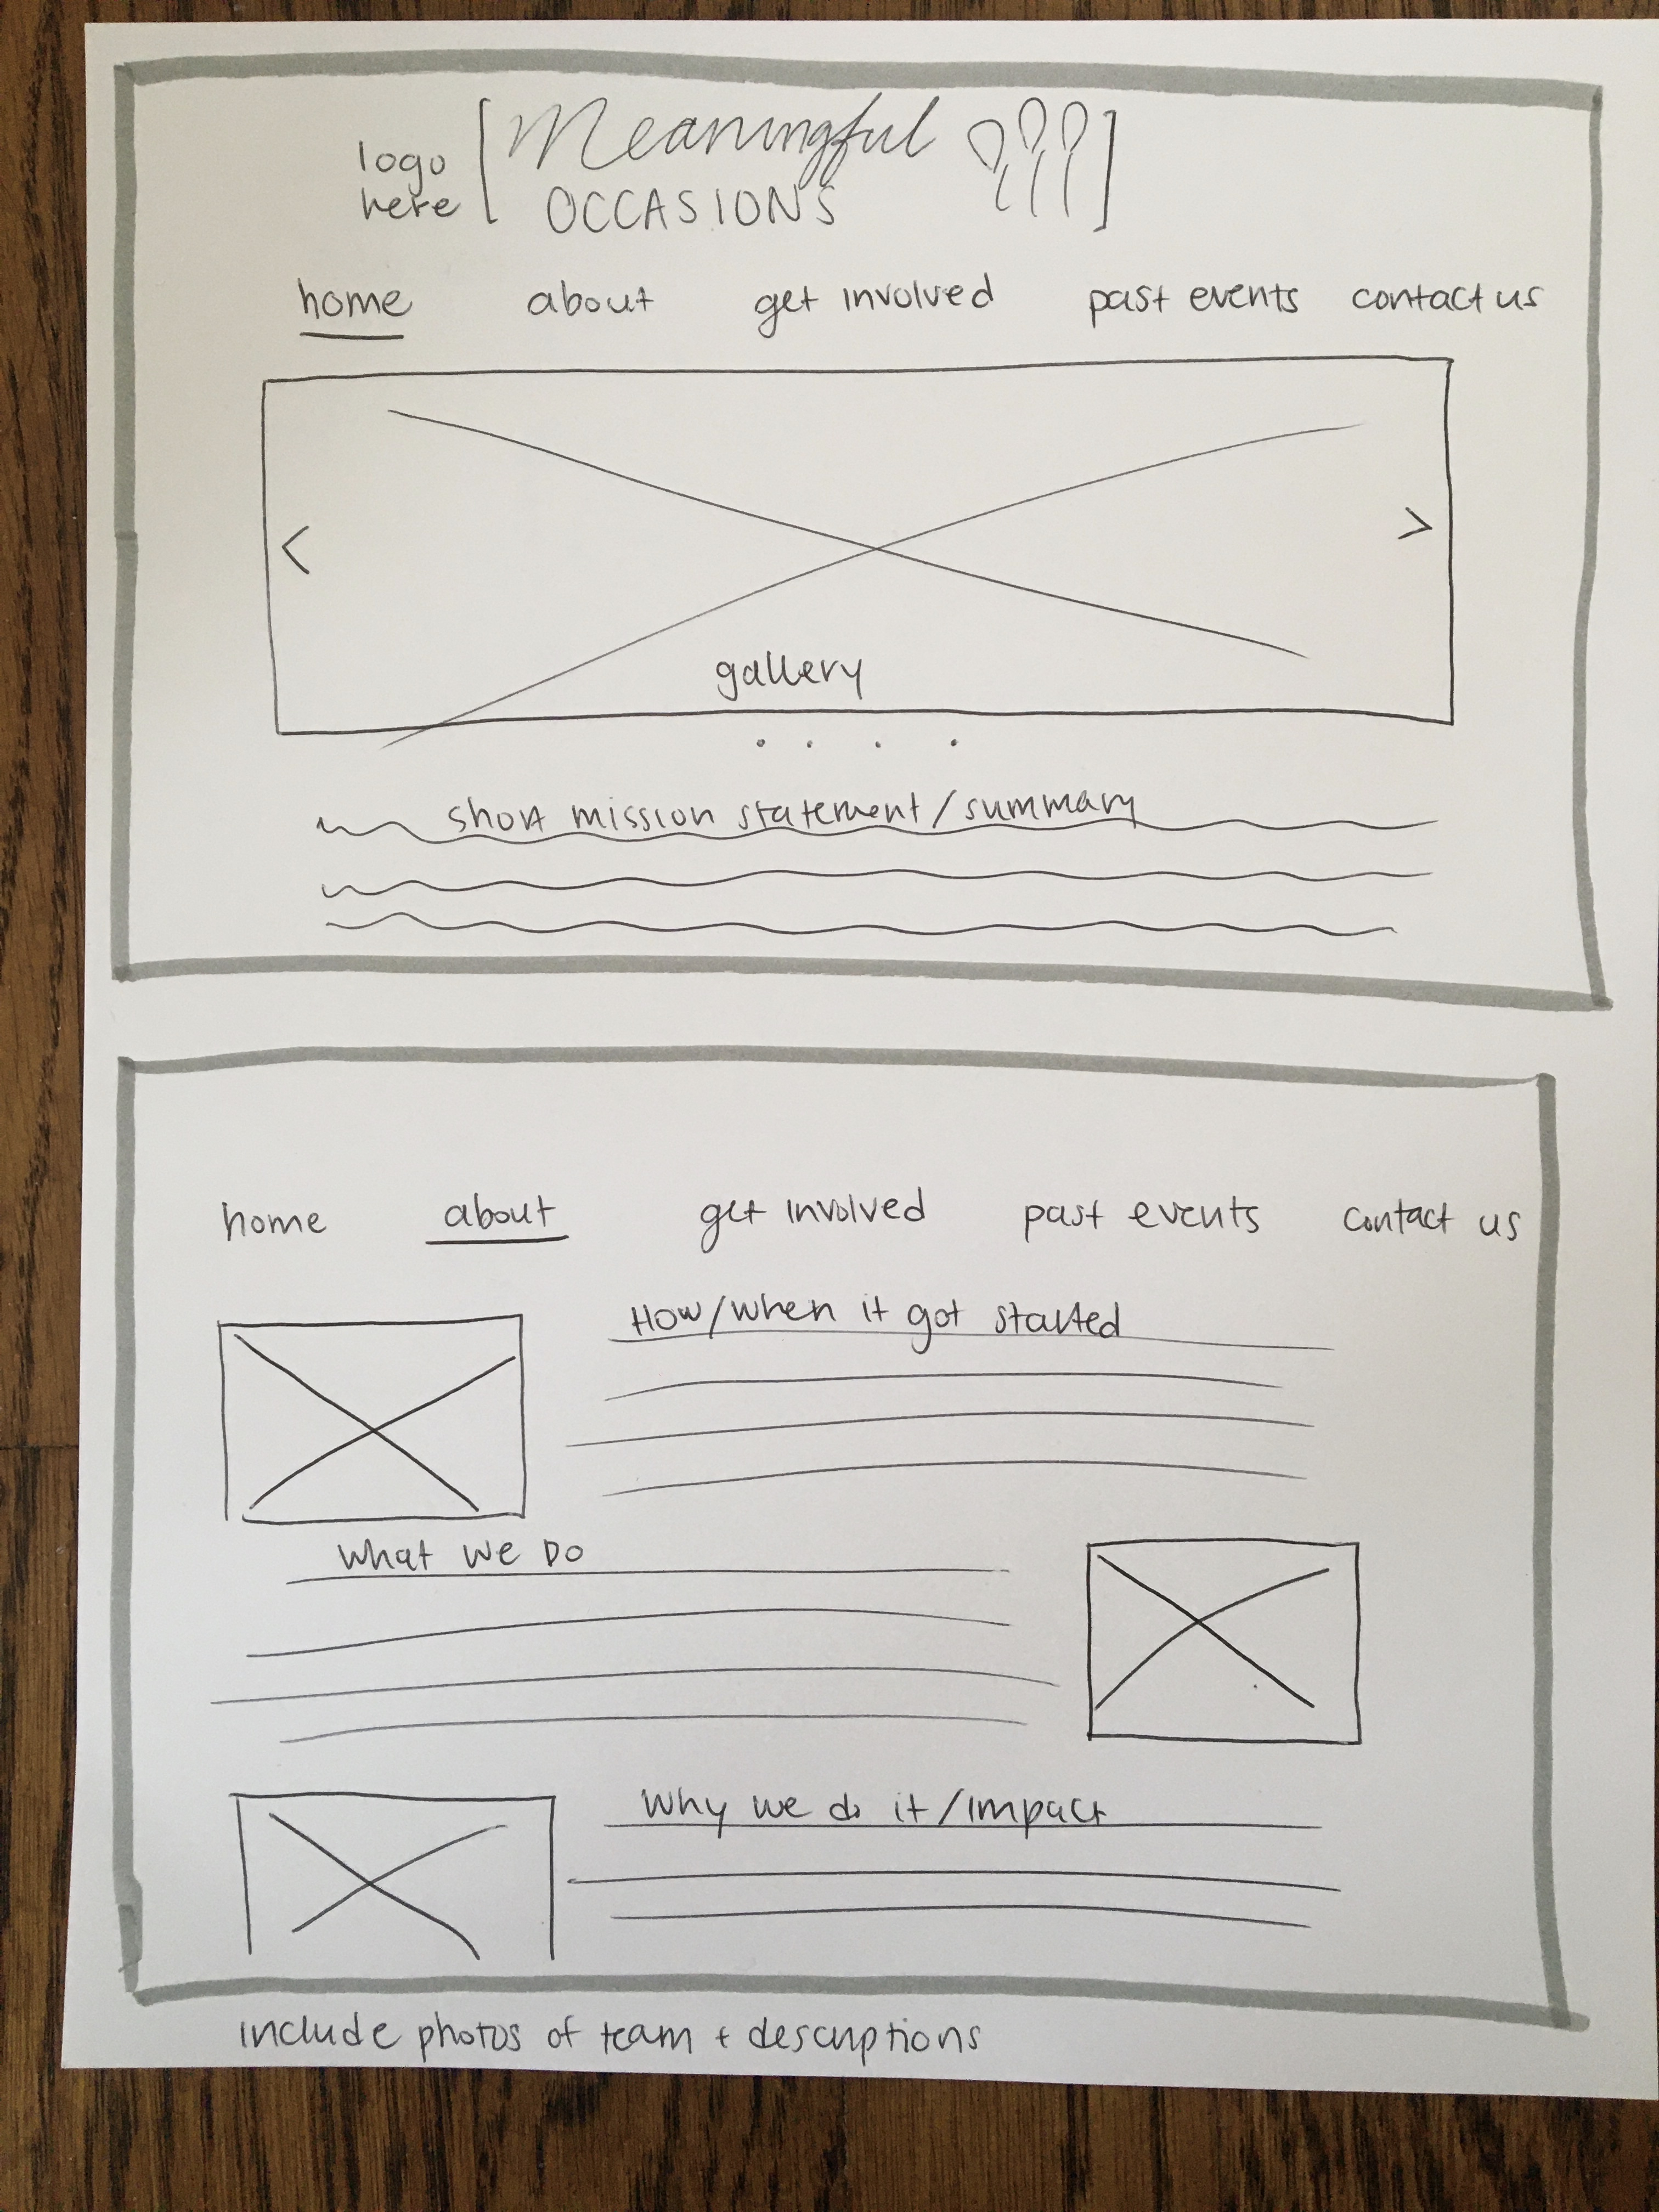 logo
here
Meaningful
OCCASIONS
home about get involved past events contact us
< >
gallery
short mission statement/summary
home about get involved past events contact us
How/when it got started
What we Do
Why we do it/impact
include photos of team + descriptions